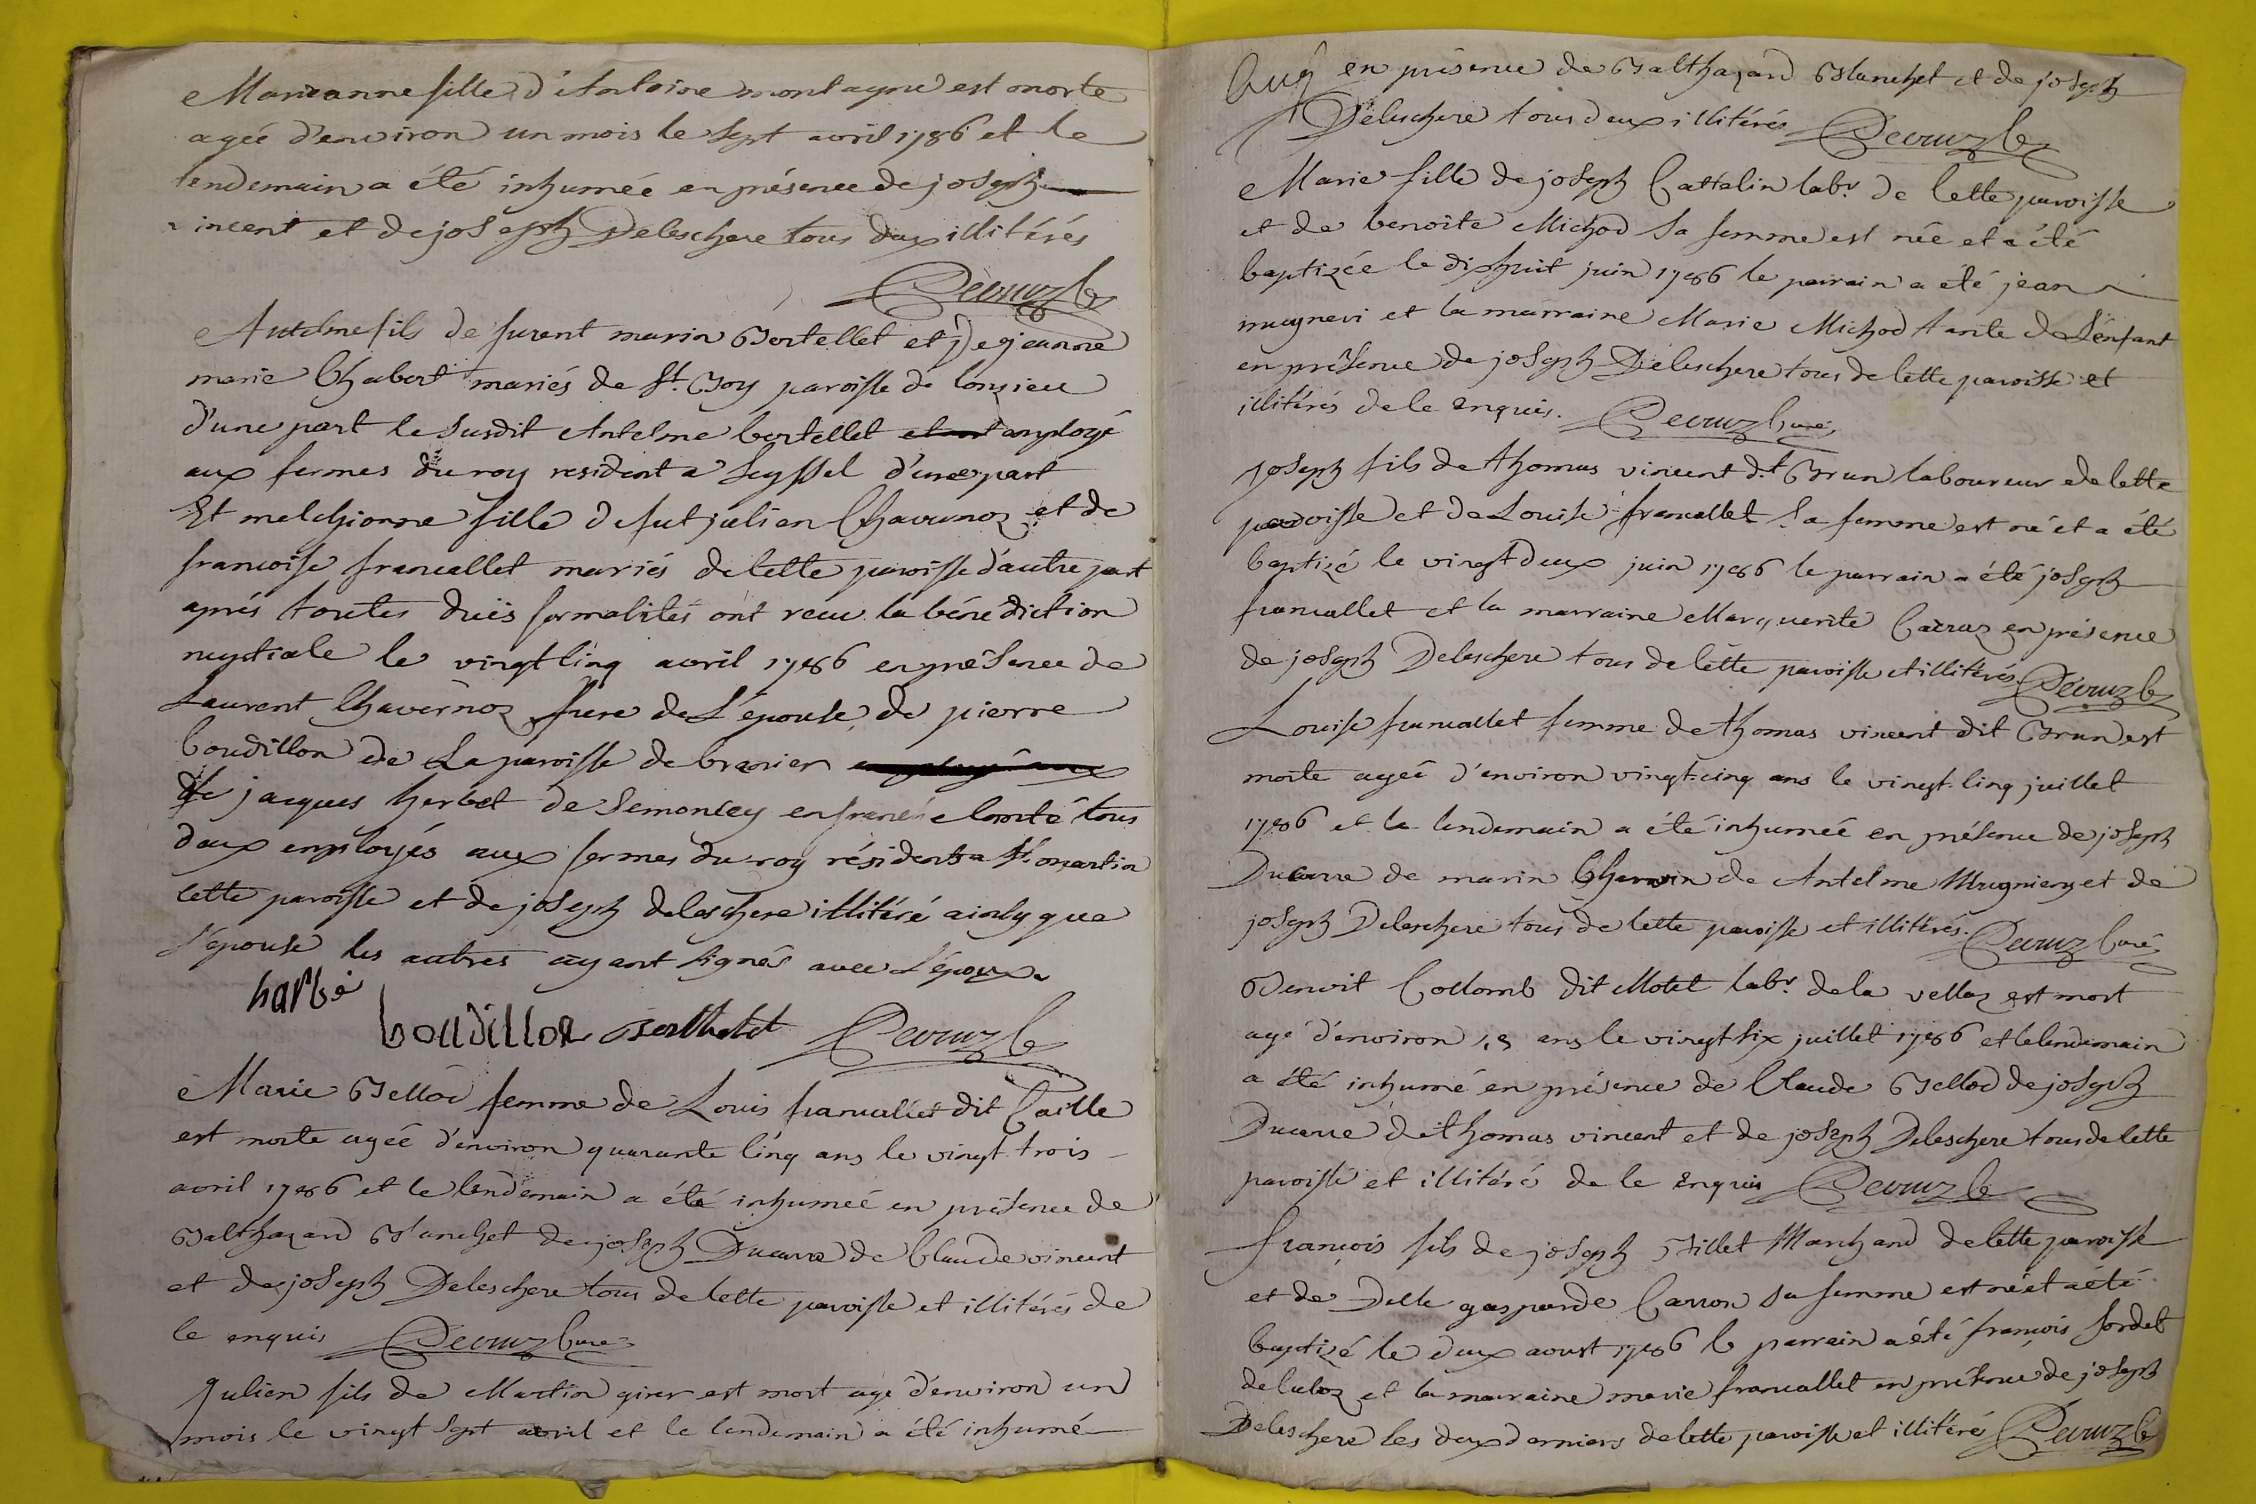 Marianne fille d'Antoine montagne est morte
agée d'environ un mois le sept avril 1786 et le
lendemain a été inhumée en présence de joseph
vincent et de joseph Deleschere tous deux illitérés
Decruz Cé
Antelme fils de furent marin Bertellet et de jeanne
marie Chabert mariés de St. Boy paroisse de
d'une part le susdit Antelme bertellet employé
aux fermes du roy resident a Seyssel d'une part
Et melchionne fille de fut julien Chavernoz et de
francoise francallet mariés de cette paroisse d'autre part
aprés toutes duës formalités ont recu la bénédiction
nuptiale le vingt cinq avril 1786 en présence de
Laurent Chavernoz frere de L'épouse, de pierre
boudillon de La paroisse de branier
de jacques herbet de Semoncey en franche Comté tous
deux employés aux fermes du roy résidents a St. martin
cette paroisse et de joseph deleschere illitéré ainsy que
l'épouse les autres ayant signés avec L'époux.
harbé
boudillon Berthelet Decruz Cé
Marie Bellod femme de Louis francallet dit Caille
est morte agée d'environ quarante cinq ans le vingt trois
avril 1786 et le lendemain a été inhumée en présence de
Balthazard Blanchet de joseph Ducarre de Claude vincent
et de joseph Deleschere tous de cette paroisse et illitérés de
le enquis Decruz Curé
Julien fils de Martin girer est mort agé d'environ un
mois le vingt sept avril et le lendemain a été inhumé
en présence de Balthazard Blanchet et de joseph
Deleschere tous deux illitérés Decruz Cé
Marie fille de joseph Cattelin labr. de cette paroisse
et de benoite Michod sa femme est née et a été
baptizée le dixhuit juin 1786 le parrain a été jean
mugneri et la marraine Marie Michod tante de L'enfant
en présence de joseph Deleschere tous de cette paroisse et
illitérés de le enquis. Decruz Curé
Joseph fils de thomas vincent dt. Brun laboureur de cette
paroisse et de Louise francallet sa femme est né et a été
baptizé le vingt deux juin 1786 le parrain a été joseph
francallet et la marraine Marguerite Carraz en présence
de joseph Deleschere tous de cette paroisse et illitérés Decruz Cé
Louise francallet femme de thomas vincent dit Brun est
morte agée d'environ vingt-cinq ans le vingt-cinq juillet
1786 et le lendemain a été inhumée en présence de joseph
Ducarre de marin de Antelme Mugniery et de
joseph Deleschere tous de cette paroisse et illitérés. Decruz Curé
Benoit Collomb dit Motet labr. de la vellaz est mort
agé d'environ ans le vingt six juillet 1786 et le lendemain
a été inhumé en présence de Claude Bellod de joseph
Ducarre de thomas vincent et de joseph Deleschere tous de cette
paroisse et illitéré de le enquis Decruz Cé
francois fils de joseph Billet Marchand de cette paroisse
et de Delle gasparde Carron sa femme est né et a été
baptizé le deux aoust 1786 le parrain a été françois Sordet
de et la marraine marie francallet en présence de joseph
Deleschere les deux derniers de cette paroisse et illitéré Decruz Cé